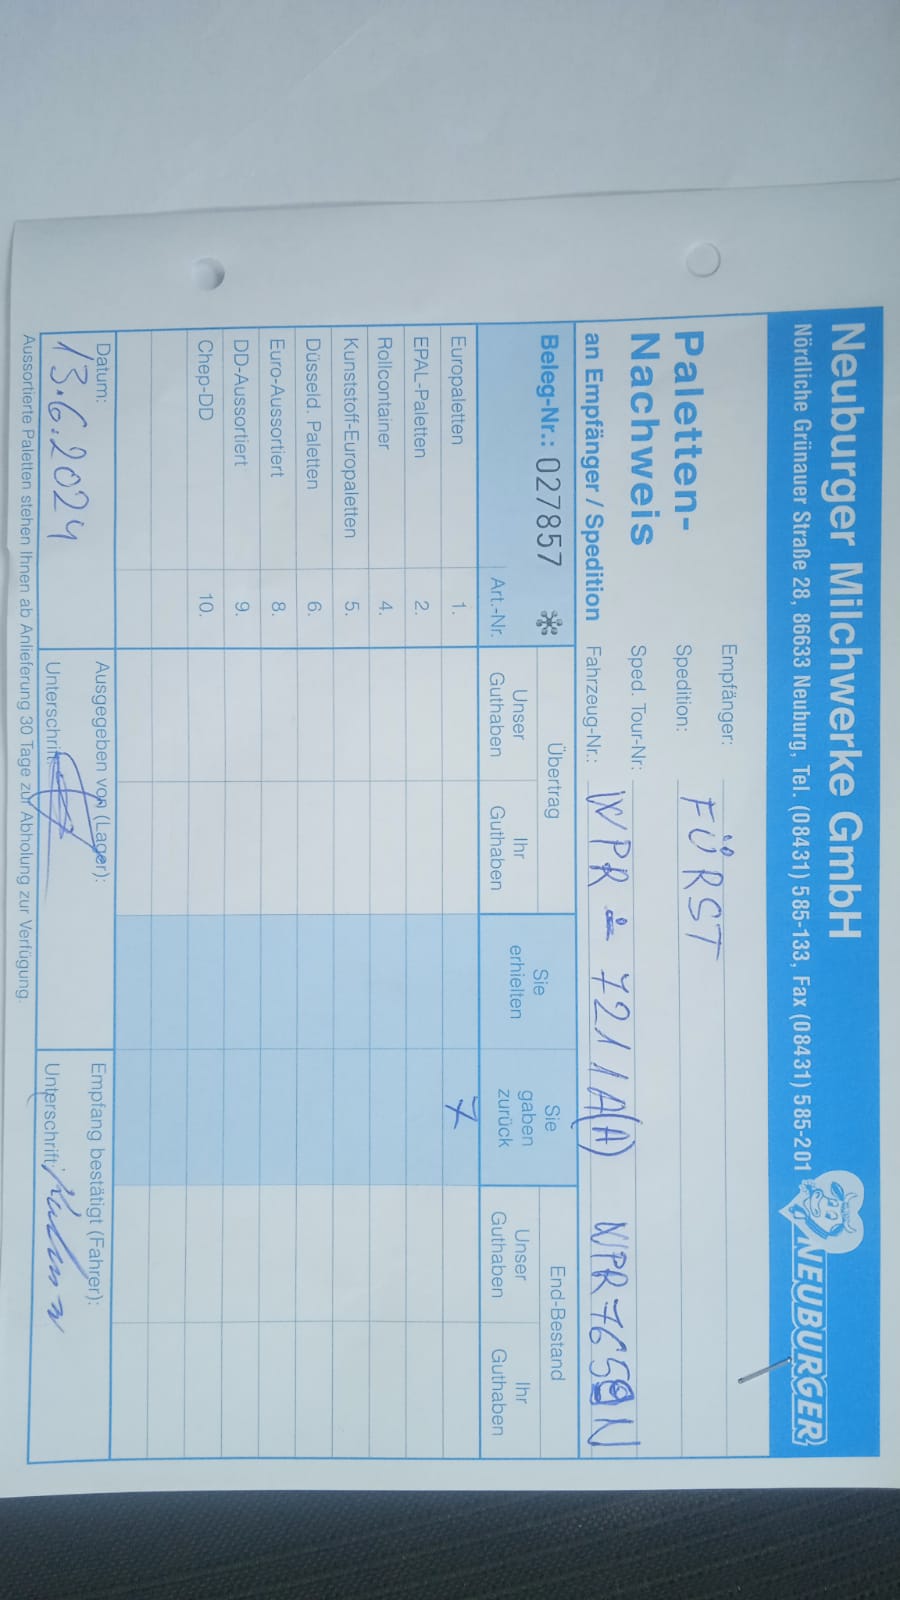 Neuburger Milchwerke GmbH
Nördliche Grünauer Straße 28, 86633 Neuburg, Tel. (08431) 585-133, Fax (08431) 585-201
NEUBURGER
Paletten-
Nachweis
an Empfänger / Spedition
Empfänger:
Spedition: FÜRST
Sped. Tour-Nr:
Fahrzeug-Nr.: WPR 7211A(A) WPR
Beleg-Nr.: 027857
Art.-Nr.
Übertrag
Unser Guthaben
Ihr Guthaben
Sie erhielten
Sie gaben zurück
End-Bestand
Unser Guthaben
Ihr Guthaben
Europaletten 1. 7
EPAL-Paletten 2.
Rollcontainer 4.
Kunststoff-Europaletten 5.
Düsseld. Paletten 6.
Euro-Aussortiert 8.
DD-Aussortiert 9.
Chep-DD 10.
Datum:
13.6.2024
Ausgegeben von (Lager):
Unterschrift:
Empfang bestätigt (Fahrer):
Unterschrift:
Aussortierte Paletten stehen Ihnen ab Anlieferung 30 Tage zur Abholung zur Verfügung.